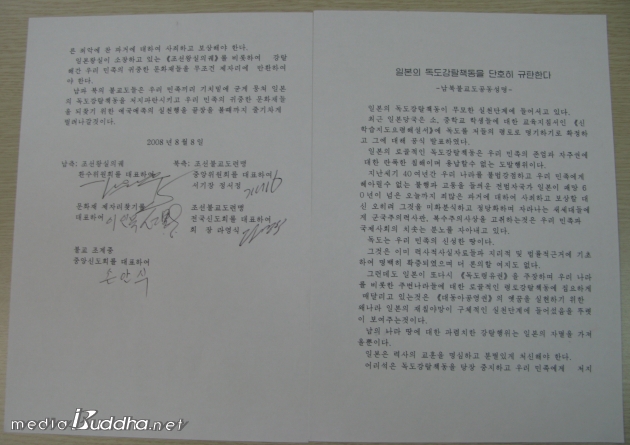 일본의 독도강탈책동을 단호히 규탄한다
-남북불교도공동성명-
일본의 독도강탈책동이 무모한 실천단계에 들어서고 있다.
최근 일본당국은 소, 중학교 학생들에 대한 교육지침서인 《신
학습지도요령해설서》에 독도를 저들의 령토로 명기하기로 확정하
고 그에 대해 공식 발표하였다.
일본의 로골적인 독도강탈책동은 우리 민족의 존엄과 자주권에
대한 란폭한 침해이며 용납할수 없는 도발행위이다.
지난세기 40여년간 우리 나라를 불법강점하고 우리 민족에게
헤아릴수 없는 불행과 고통을 들씌운 전범자국가 일본이 패망 60
년이 넘은 오늘까지 죄많은 과거에 대하여 사죄하고 보상할 대
신 오히려 그것을 미화분식하고 정당화하며 자라나는 새세대들에
게 군국주의력사관, 복수주의사상을 고취하는것은 우리 민족과
국제사회의 치솟는 분노를 자아내고 있다.
독도는 우리 민족의 신성한 땅이다.
그것은 이미 력사적사실자료들과 지리적 및 법률적근거에 기초
하여 명백히 확증되였으며 더 론의할 여지도 없다.
그런데도 일본이 또다시 《독도령유권》을 주장하며 우리 나라
를 비롯한 주변나라들에 대한 로골적인 령토강탈책동에 집요하게
매달리고 있는것은 《대동아공영권》의 옛꿈을 실현하기 위한
해나라 일본의 재침야망이 구체적인 실천단계에 들어섰음을 뚜렷
이 보여주는것이다.
남의 나라 땅에 대한 파렴치한 강탈행위는 일본의 자멸을 가져
올뿐이다.
일본은 력사의 교훈을 명심하고 분별있게 처신해야 한다.
어리석은 독도강탈책동을 당장 중지하고 우리 민족에게 저지
른 죄악에 찬 과거에 대하여 사죄하고 보상해야 한다.
일본왕실이 소장하고 있는 《조선왕실의궤》를 비롯하여 강탈
해간 우리 민족의 귀중한 문화재들을 무조건 제자리에 반환하여
야 한다.
남과 북의 불교도들은 우리 민족끼리 기치밑에 굳게 뭉쳐 일본
의 독도강탈책동을 저지파탄시키고 우리 민족의 귀중한 문화재들
을 되찾기 위한 애국애족의 실천행을 끝장을 볼때까지 줄기차게
벌려나갈것이다.
2008년 8월 8일
남측: 조선왕실의궤
환수위원회를 대표하여
북측: 조선불교도련맹
중앙위원회를 대표하여
서기장 정서정
문화재 제자리찾기를
대표하여
조선불교도련맹
전국신도회를 대표하여
회 장 라영식
불교 조계종
중앙신도회를 대표하여
손안식
media.Buddha.net